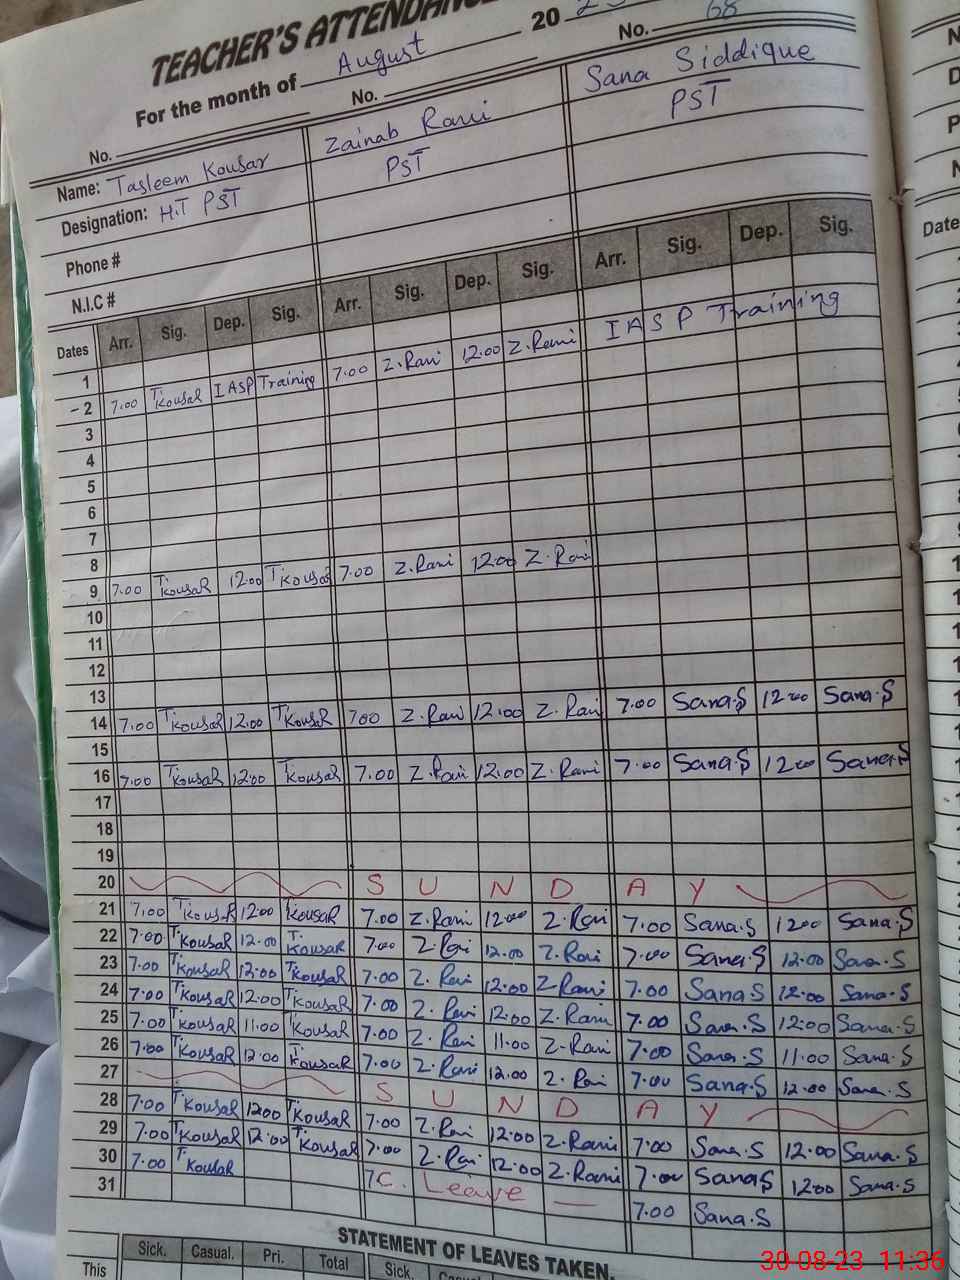 TEACHER'S ATTENDANC
For the month of August 20 23
No. No. No. 68
Name: Tasleem Kousar Zainab Rani Sana Siddique
Designation: H.T PST PST PST
Phone #
N.I.C #
Dates Arr. Sig. Dep. Sig. Arr. Sig. Dep. Sig. Arr. Sig. Dep. Sig.
1
2 7.00 T.KousaR IASP Training 7.00 Z.Rani 12.00 Z.Rani IASP Training
3
4
5
6
7
8
9 7.00 T.KousaR 12.00 T.KousaR 7.00 Z.Rani 12.00 Z.Rani
10
11
12
13
14 7.00 T.KousaR 12.00 T.KousaR 7.00 Z.Rani 12.00 Z.Rani 7.00 Sana.S 12.00 Sana.S
15
16 7.00 T.KousaR 12.00 T.KousaR 7.00 Z.Rani 12.00 Z.Rani 7.00 Sana.S 12.00 Sana.S
17
18
19
20 S U N D A Y
21 7.00 T.KousaR 12.00 T.KousaR 7.00 Z.Rani 12.00 Z.Rani 7.00 Sana.S 12.00 Sana.S
22 7.00 T.KousaR 12.00 T.KousaR 7.00 Z.Rani 12.00 Z.Rani 7.00 Sana.S 12.00 Sana.S
23 7.00 T.KousaR 12.00 T.KousaR 7.00 Z.Rani 12.00 Z.Rani 7.00 Sana.S 12.00 Sana.S
24 7.00 T.KousaR 12.00 T.KousaR 7.00 Z.Rani 12.00 Z.Rani 7.00 Sana.S 12.00 Sana.S
25 7.00 T.KousaR 11.00 T.KousaR 7.00 Z.Rani 11.00 Z.Rani 7.00 Sana.S 11.00 Sana.S
26 7.00 T.KousaR 12.00 T.KousaR 7.00 Z.Rani 12.00 Z.Rani 7.00 Sana.S 12.00 Sana.S
27 S U N D A Y
28 7.00 T.KousaR 12.00 T.KousaR 7.00 Z.Rani 12.00 Z.Rani 7.00 Sana.S 12.00 Sana.S
29 7.00 T.KousaR 12.00 T.KousaR 7.00 Z.Rani 12.00 Z.Rani 7.00 Sana.S 12.00 Sana.S
30 7.00 T.KousaR C. Leave 7.00 Sana.S
31
STATEMENT OF LEAVES TAKEN.
Sick. Casual. Pri. Total Sick.
This
Date
30-08-23 11:36